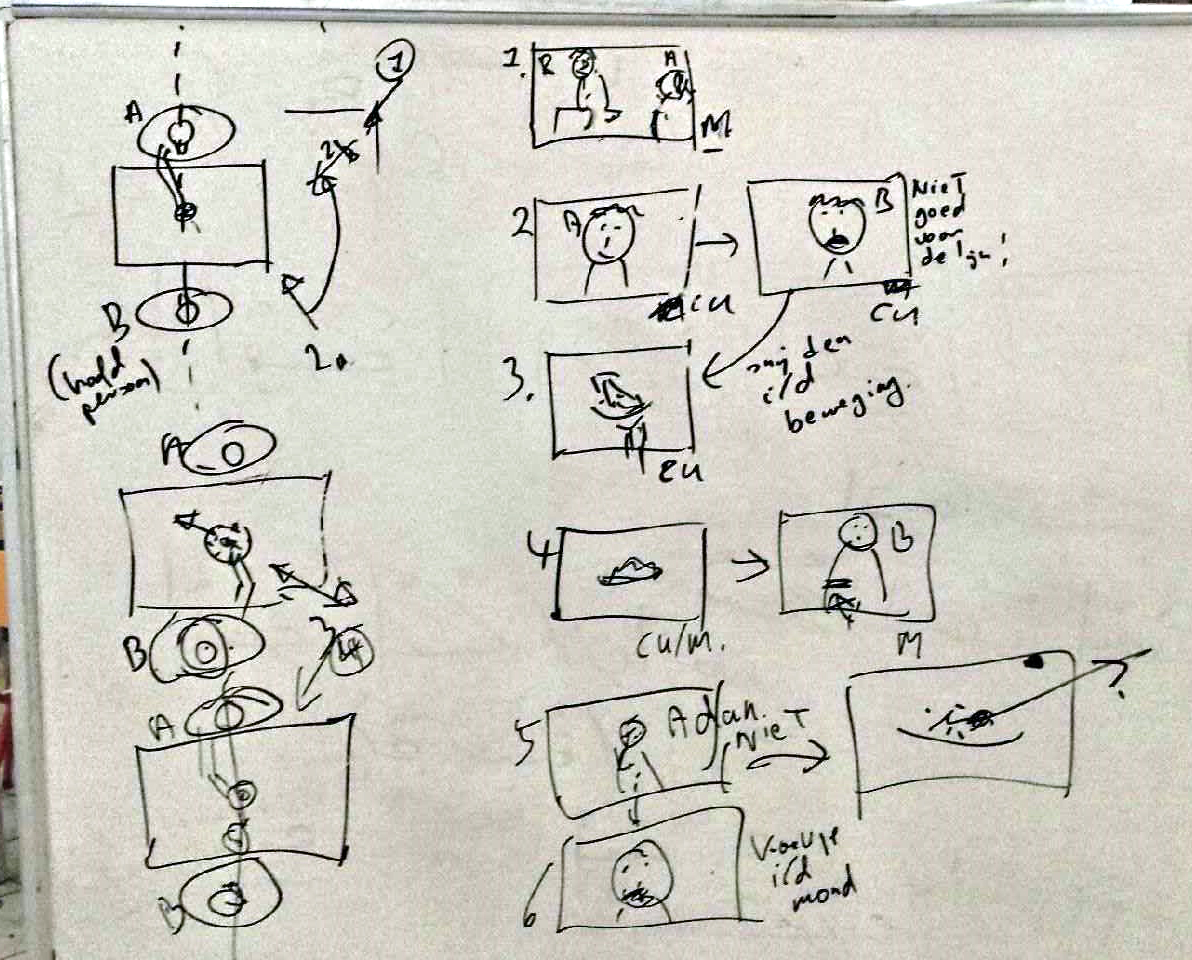 A
B
(hoofd
persoon)
1
2x
2.
A
B
3
4
A
B
1.
B
A
M
2
A
CU
B
CU
NieT
goed
voor
de lijn!
3.
CU
snijden
i/d
beweging.
4
CU/M.
B
M
5
A
dan.
NieT
?
6
i/d
mond